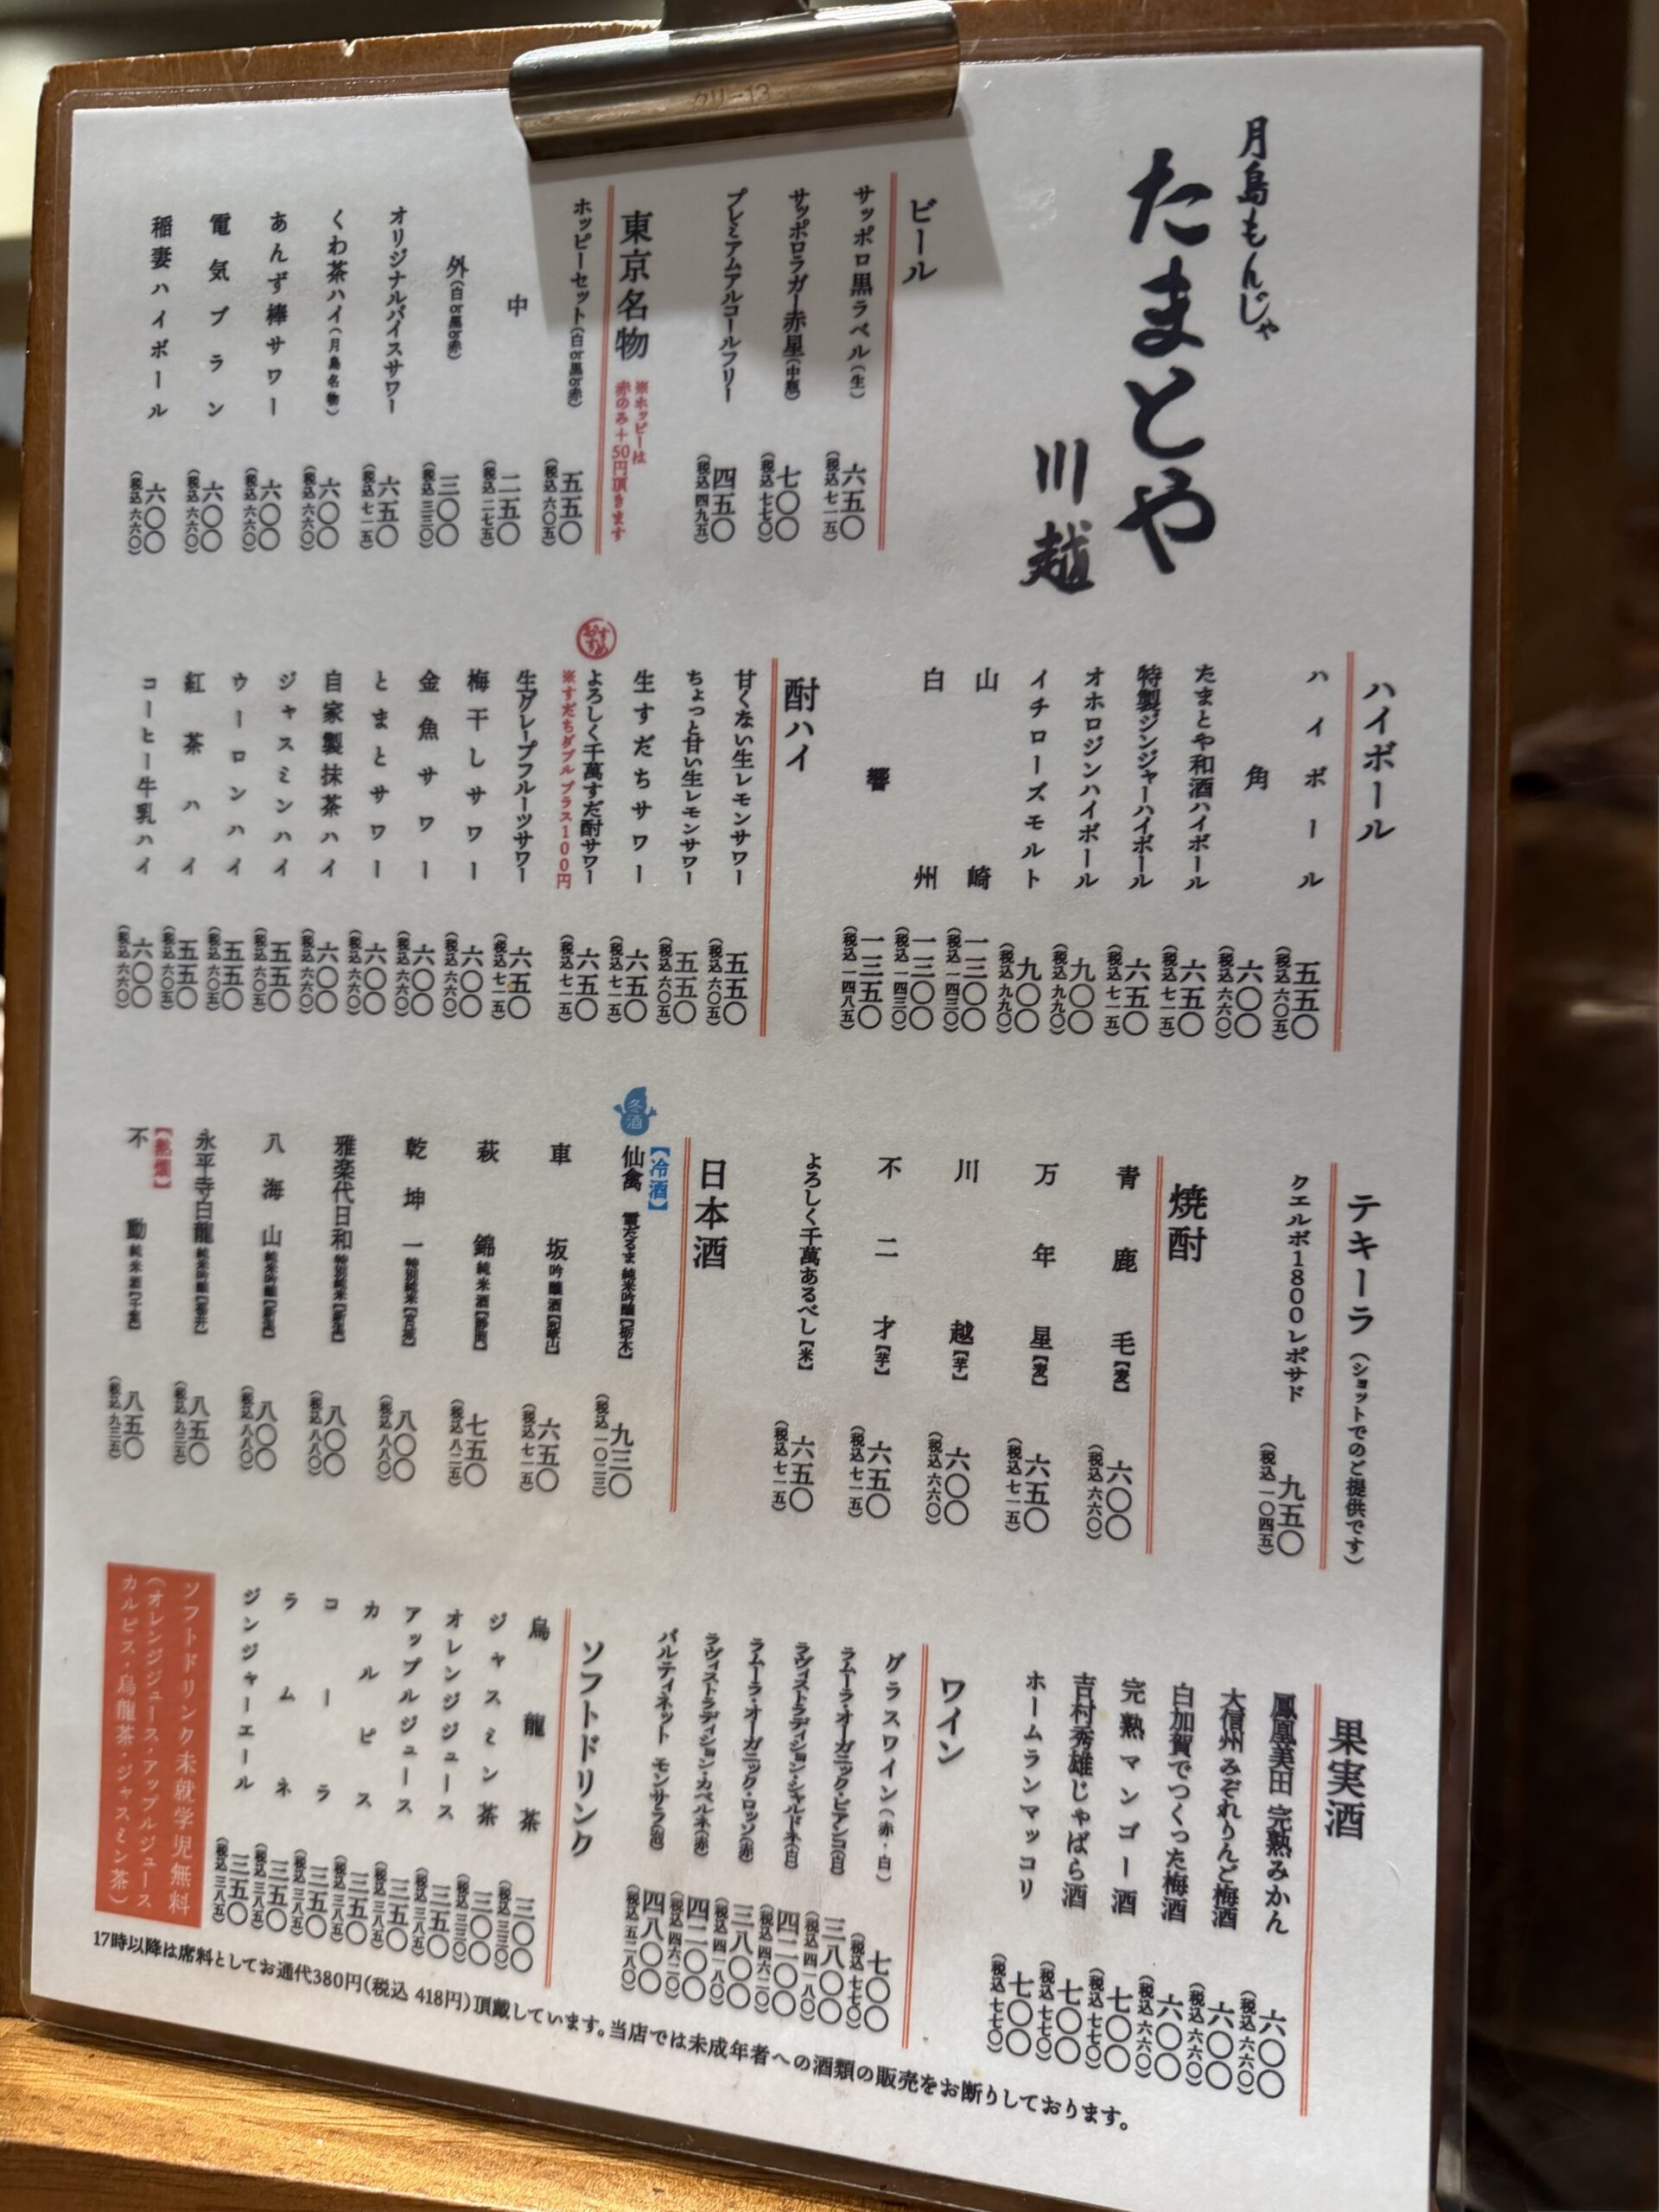 月島もんじゃ
たまとや
川越
ビール
サッポロ黒ラベル(生) 六五〇 (税込 七一五)
サッポロラガー赤星(中瓶) 七〇〇 (税込 七七〇)
プレミアムアルコールフリー 四五〇 (税込 四九五)
東京名物
※ホッピーは
赤のみ+50円頂きます
ホッピーセット(白or黒or赤) 五五〇 (税込 六〇五)
中 二五〇 (税込 二七五)
外(白or黒or赤) 三〇〇 (税込 三三〇)
オリジナルバイスサワー 六五〇 (税込 七一五)
くわ茶ハイ(月島名物) 六〇〇 (税込 六六〇)
あんず棒サワー 六〇〇 (税込 六六〇)
電気ブラン 六〇〇 (税込 六六〇)
稲妻ハイボール 六〇〇 (税込 六六〇)
ハイボール
ハイボール 五五〇 (税込 六〇五)
角 六〇〇 (税込 六六〇)
たまとや和酒ハイボール 六五〇 (税込 七一五)
特製ジンジャーハイボール 六五〇 (税込 七一五)
オホロジンハイボール 九〇〇 (税込 九九〇)
イチローズモルト 九〇〇 (税込 九九〇)
山崎 一三〇〇 (税込 一四三〇)
白州 一三〇〇 (税込 一四三〇)
響 一三五〇 (税込 一四八五)
酎ハイ
甘くない生レモンサワー 五五〇 (税込 六〇五)
ちょっと甘い生レモンサワー 五五〇 (税込 六〇五)
生すだちサワー 六五〇 (税込 七一五)
おすすめ
よろしく千萬すだ酎サワー 六五〇 (税込 七一五)
※すだちダブル プラス100円
生グレープフルーツサワー 六五〇 (税込 七一五)
梅干しサワー 六〇〇 (税込 六六〇)
金魚サワー 六〇〇 (税込 六六〇)
とまとサワー 六〇〇 (税込 六六〇)
自家製抹茶ハイ 六〇〇 (税込 六六〇)
ジャスミンハイ 五五〇 (税込 六〇五)
ウーロンハイ 五五〇 (税込 六〇五)
紅茶ハイ 五五〇 (税込 六〇五)
コーヒー牛乳ハイ 六〇〇 (税込 六六〇)
テキーラ(ショットでのご提供です)
クエルボ1800レポサド 九五〇 (税込 一〇四五)
焼酎
青鹿毛【麦】 六〇〇 (税込 六六〇)
万年星【麦】 六五〇 (税込 七一五)
川越【芋】 六〇〇 (税込 六六〇)
不二才【芋】 六五〇 (税込 七一五)
よろしく千萬あるべし【米】 六五〇 (税込 七一五)
日本酒
【冷酒】
冬酒
仙禽 雪だるま 純米吟醸【栃木】 九三〇 (税込 一〇二三)
車坂 吟醸酒【和歌山】 六五〇 (税込 七一五)
萩錦 純米酒【静岡】 七五〇 (税込 八二五)
乾坤一 特別純米【宮城】 八〇〇 (税込 八八〇)
雅楽代日和 特別純米【新潟】 八〇〇 (税込 八八〇)
八海山 純米吟醸【新潟】 八〇〇 (税込 八八〇)
永平寺白龍 純米吟醸【福井】 八五〇 (税込 九三五)
【熱燗】
不動 純米酒【千葉】 八五〇 (税込 九三五)
果実酒
鳳凰美田 完熟みかん 六〇〇 (税込 六六〇)
大信州 みぞれりんご梅酒 六〇〇 (税込 六六〇)
白加賀でつくった梅酒 六〇〇 (税込 六六〇)
完熟マンゴー酒 七〇〇 (税込 七七〇)
吉村秀雄じゃばら酒 七〇〇 (税込 七七〇)
ホームランマッコリ 七〇〇 (税込 七七〇)
ワイン
グラスワイン(赤・白) 七〇〇 (税込 七七〇)
ラムーラ・オーガニック・ビアンコ(白) 三八〇〇 (税込 四一八〇)
ラヴィストラディション・シャルドネ(白) 四二〇〇 (税込 四六二〇)
ラムーラ・オーガニック・ロッソ(赤) 三八〇〇 (税込 四一八〇)
ラヴィストラディション・カベルネ(赤) 四二〇〇 (税込 四六二〇)
パルティネット モンサラ(泡) 四八〇〇 (税込 五二八〇)
ソフトドリンク
烏龍茶 三〇〇 (税込 三三〇)
ジャスミン茶 三〇〇 (税込 三三〇)
オレンジジュース 三五〇 (税込 三八五)
アップルジュース 三五〇 (税込 三八五)
カルピス 三五〇 (税込 三八五)
コーラ 三五〇 (税込 三八五)
ラムネ 三五〇 (税込 三八五)
ジンジャーエール 三五〇 (税込 三八五)
ソフトドリンク未就学児無料
(オレンジジュース・アップルジュース
カルピス・烏龍茶・ジャスミン茶)
17時以降は席料としてお通代380円(税込 418円)頂戴しています。当店では未成年者への酒類の販売をお断りしております。
クリー13